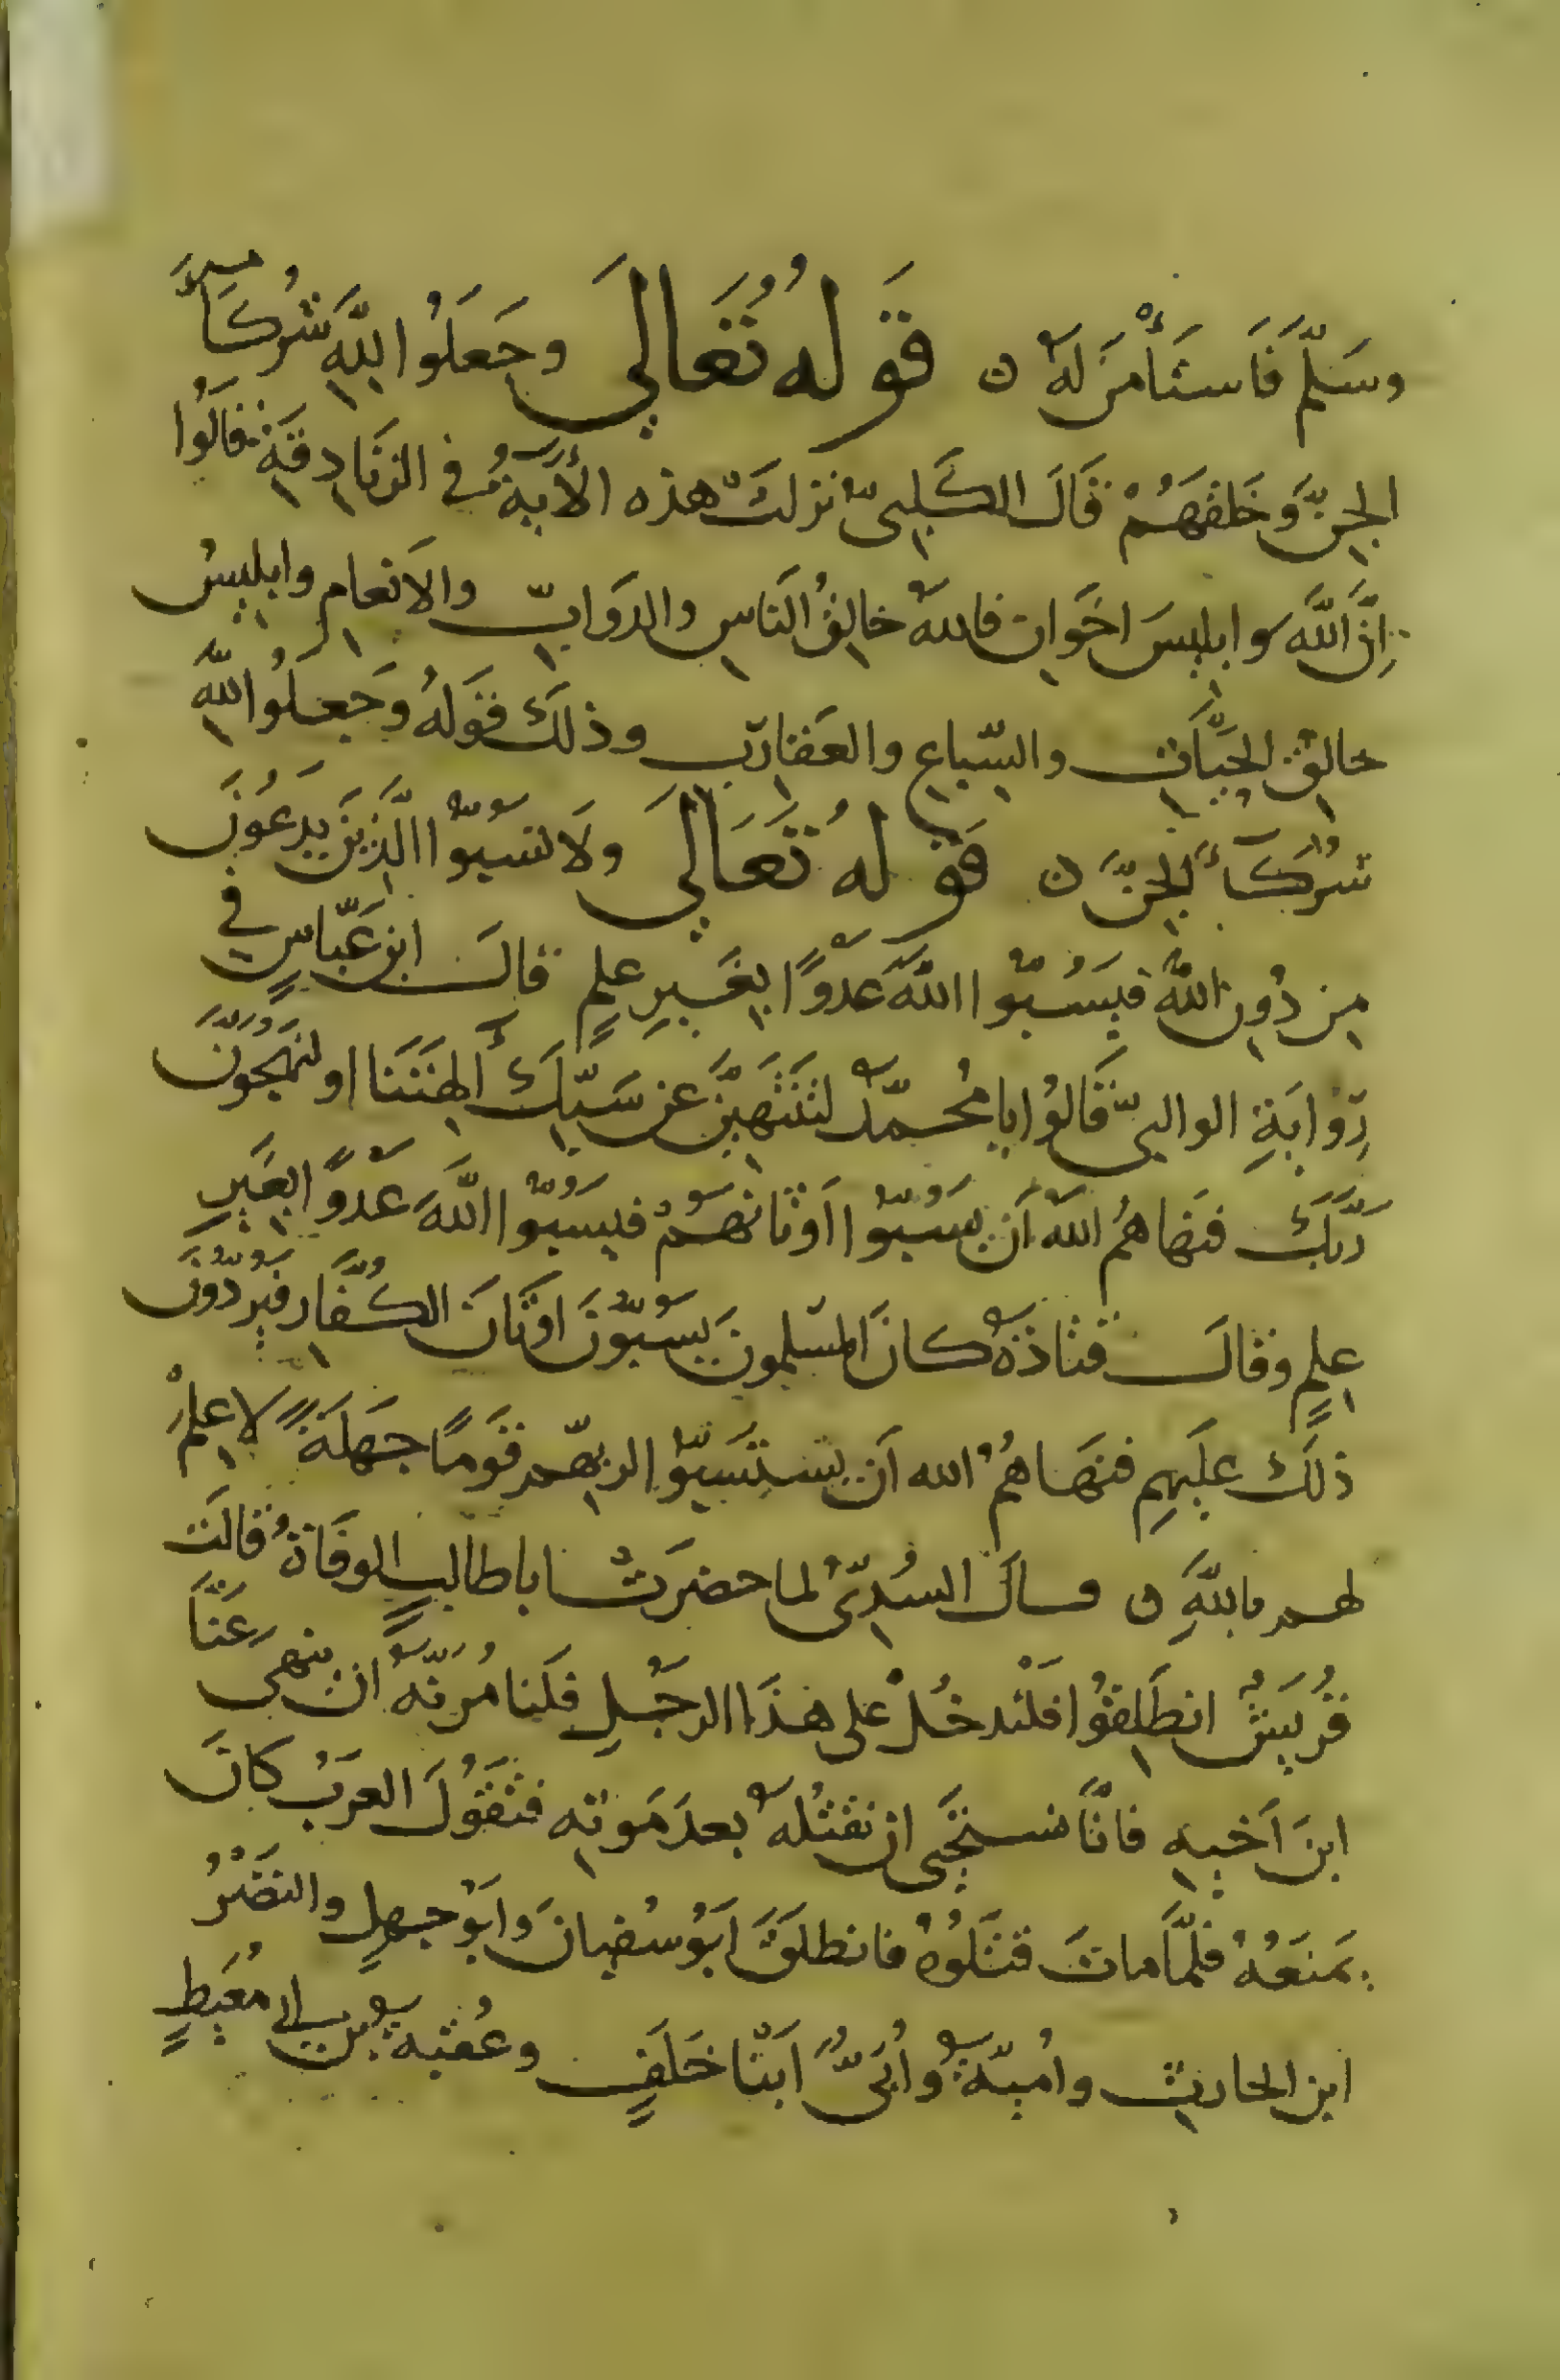 وسَلَّم فَاستَأْمَرَ لهُ ن قَولهُ تَعَالَى وجَعَلَوُا للّهِ شُرَكَاءَ
الجنَّ وَخَلقَهَمُ قَالَ الكَلبىّ نزلتْ هذه الأَيَةُ في الزنَادِقةِ قالُوا
اِنَّ اللّهَ وابلبسَ اخَوان فاللهُ خالقُ النَاسِ والدوَابّ والانعام وابليسُ
خالقُ الحيَّات والسّباعِ والعَقاربِ وذلكَ قولهُ وجَعلوُا للّهِ
شُركَاءَ الجنَّ ن قَولهُ تَعَالَى ولَا تسبوّا الَّذينَ يَدعُونَ
مِن دُونِ اللهِ فيَسُبّوا اللهَ عَدوًا بِغَيرِ علمٍ قالَ ابن عَبّاسٍ في
رِوايَةِ الوالبىّ قَالوُا يا مُحمّدُ لتَنتَهيَنَّ عن سَبّكَ ألِهَتَنَا او لنَهجُونَّ
رَبّكَ فنهَاهُم اللهُ أن يَسُبّوا اَوثانهُم فيسبُّوا اللَّهَ عَدوًا بغَيرِ
علمٍ وقالَ قتادَةُ كانَ المسلمونَ يسُبّونَ اوثَانَ الكُفَّار فيَردُّونَ
ذلكَ علَيهِم فنَهاهُمُ الله اَن يستَسِبّوا لربّهم قَومًا جهَلَةً لا علمَ
لهم باللّهِ ن وقال السُدىّ لما حضرَتْ اباطالبٍ الوفَاةُ قالَت
قُريَشُ انطَلِقوُا فلْندخُلْ على هذَا الرجُلِ فلَنامُرنّهُ ان ينهى عَنَّا
ابنَ اَخيهِ فانَّا نستَحيى ان نقتُلهُ بعدَ مَوتهِ فتَقُولَ العرَبُ كانَ
يَمنَعُهُ فلمَّا ماتَ قتَلوُهُ فانطلَقَ ابَوُ سُفيانَ وابَوُ جهلٍ والنضْرُ
ابن الحارثِ واُميّةُ وأُبىُّ ابَنا خَلَفٍ وعُقبهُ بن ابى مُعَيطٍ